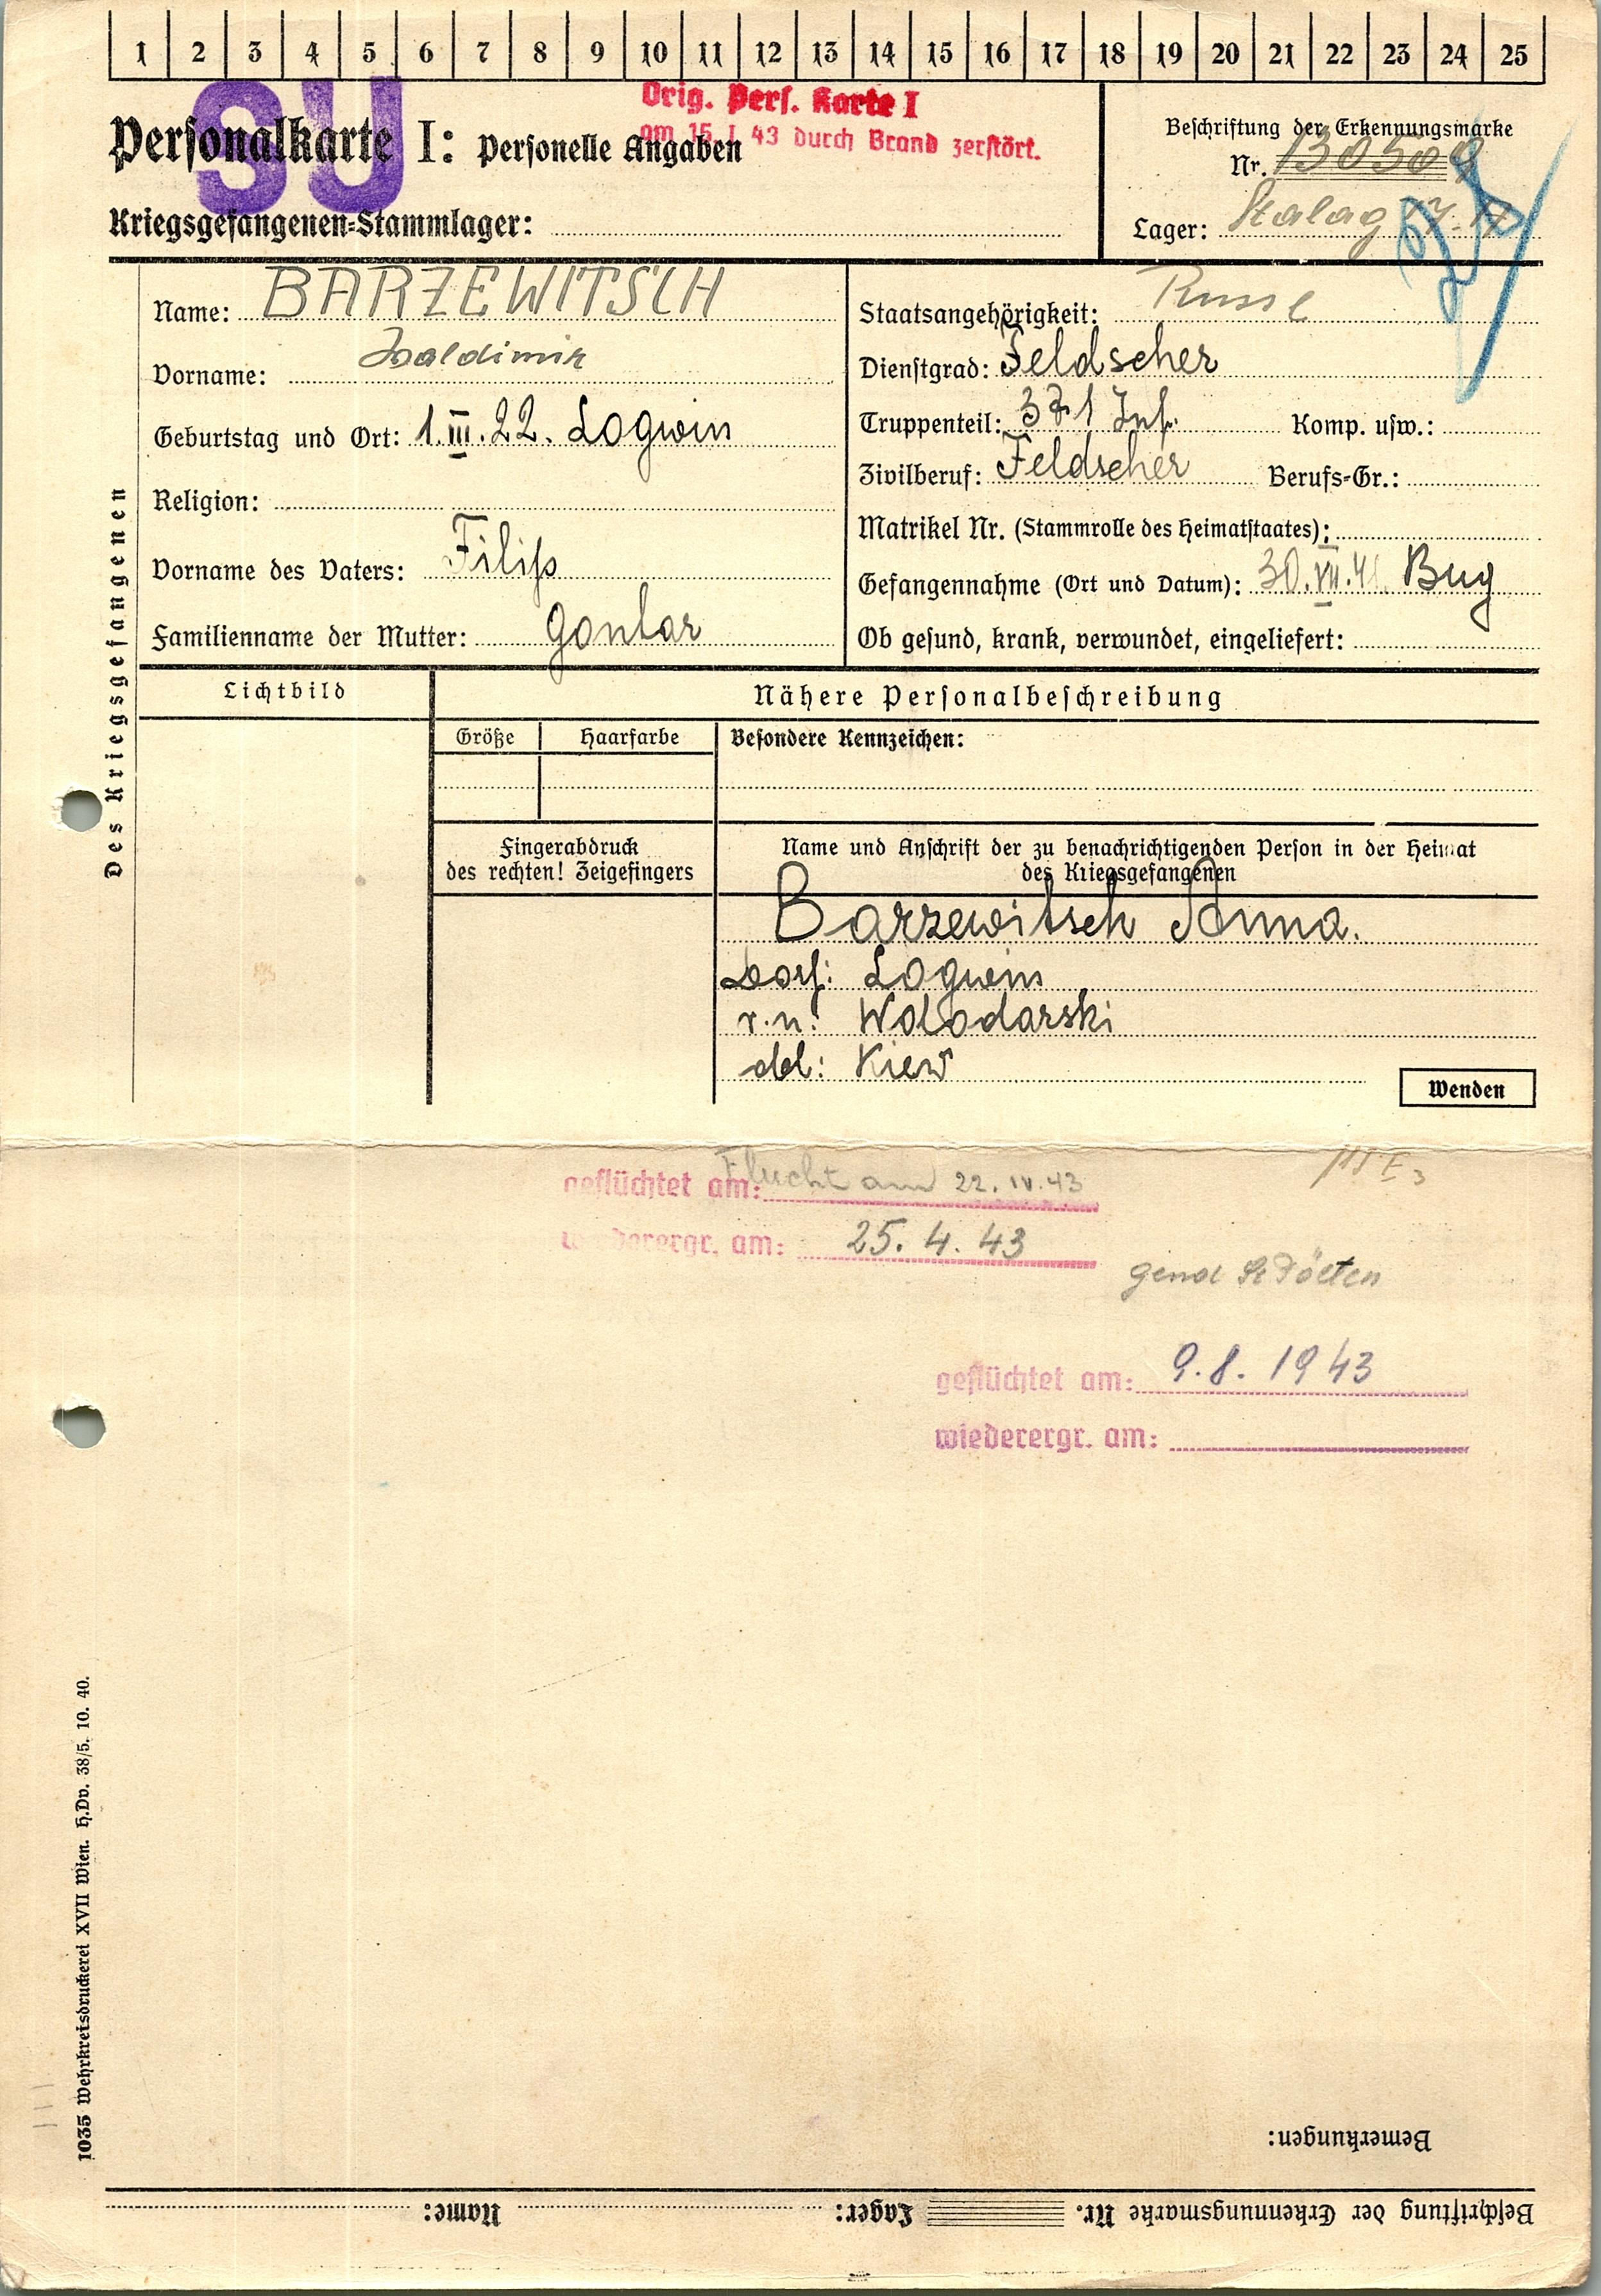 1 2 3 4 5 6 7 8 9 10 11 12 13 14 15 16 17 18 19 20 21 22 23 24 25
SU
Orig. Pers. Karte I
am 15. I. 43 durch Brand zerstört.
Personalkarte I: Personelle Angaben
Kriegsgefangenen-Stammlager:
Beschriftung der Erkennungsmarke
Nr. 130509
Lager: Stalag
Des Kriegsgefangenen
Name: BARZEWITSCH
Vorname: Waldimir
Geburtstag und Ort: 1.III.22. Logwin
Religion:
Vorname des Vaters: Filip
Familienname der Mutter: Gontar
Staatsangehörigkeit: Russe
Dienstgrad: Feldscher
Truppenteil: 371 Inf. Komp. usw.:
Zivilberuf: Feldscher Berufs-Gr.:
Matrikel Nr. (Stammrolle des Heimatstaates):
Gefangennahme (Ort und Datum): 30.VII.41. Bug
Ob gesund, krank, verwundet, eingeliefert:
Lichtbild
Nähere Personalbeschreibung
Größe Haarfarbe Besondere Kennzeichen:
Fingerabdruck
des rechten! Zeigefingers
Name und Anschrift der zu benachrichtigenden Person in der Heimat
des Kriegsgefangenen
Barzewitsch Anna.
Dorf: Logwin
r.n: Wolodarski
obl: Kiew
Wenden
geflüchtet am: Flucht am 22.IV.43
wiederergr. am: 25. 4. 43
Gend St Pölten
geflüchtet am: 9.8. 1943
wiederergr. am:
1035 Wehrkreisdruckerei XVII Wien. H.Dv. 38/5. 10. 40.
Bemerkungen:
Beschriftung der Erkennungsmarke Nr. Lager: Name: